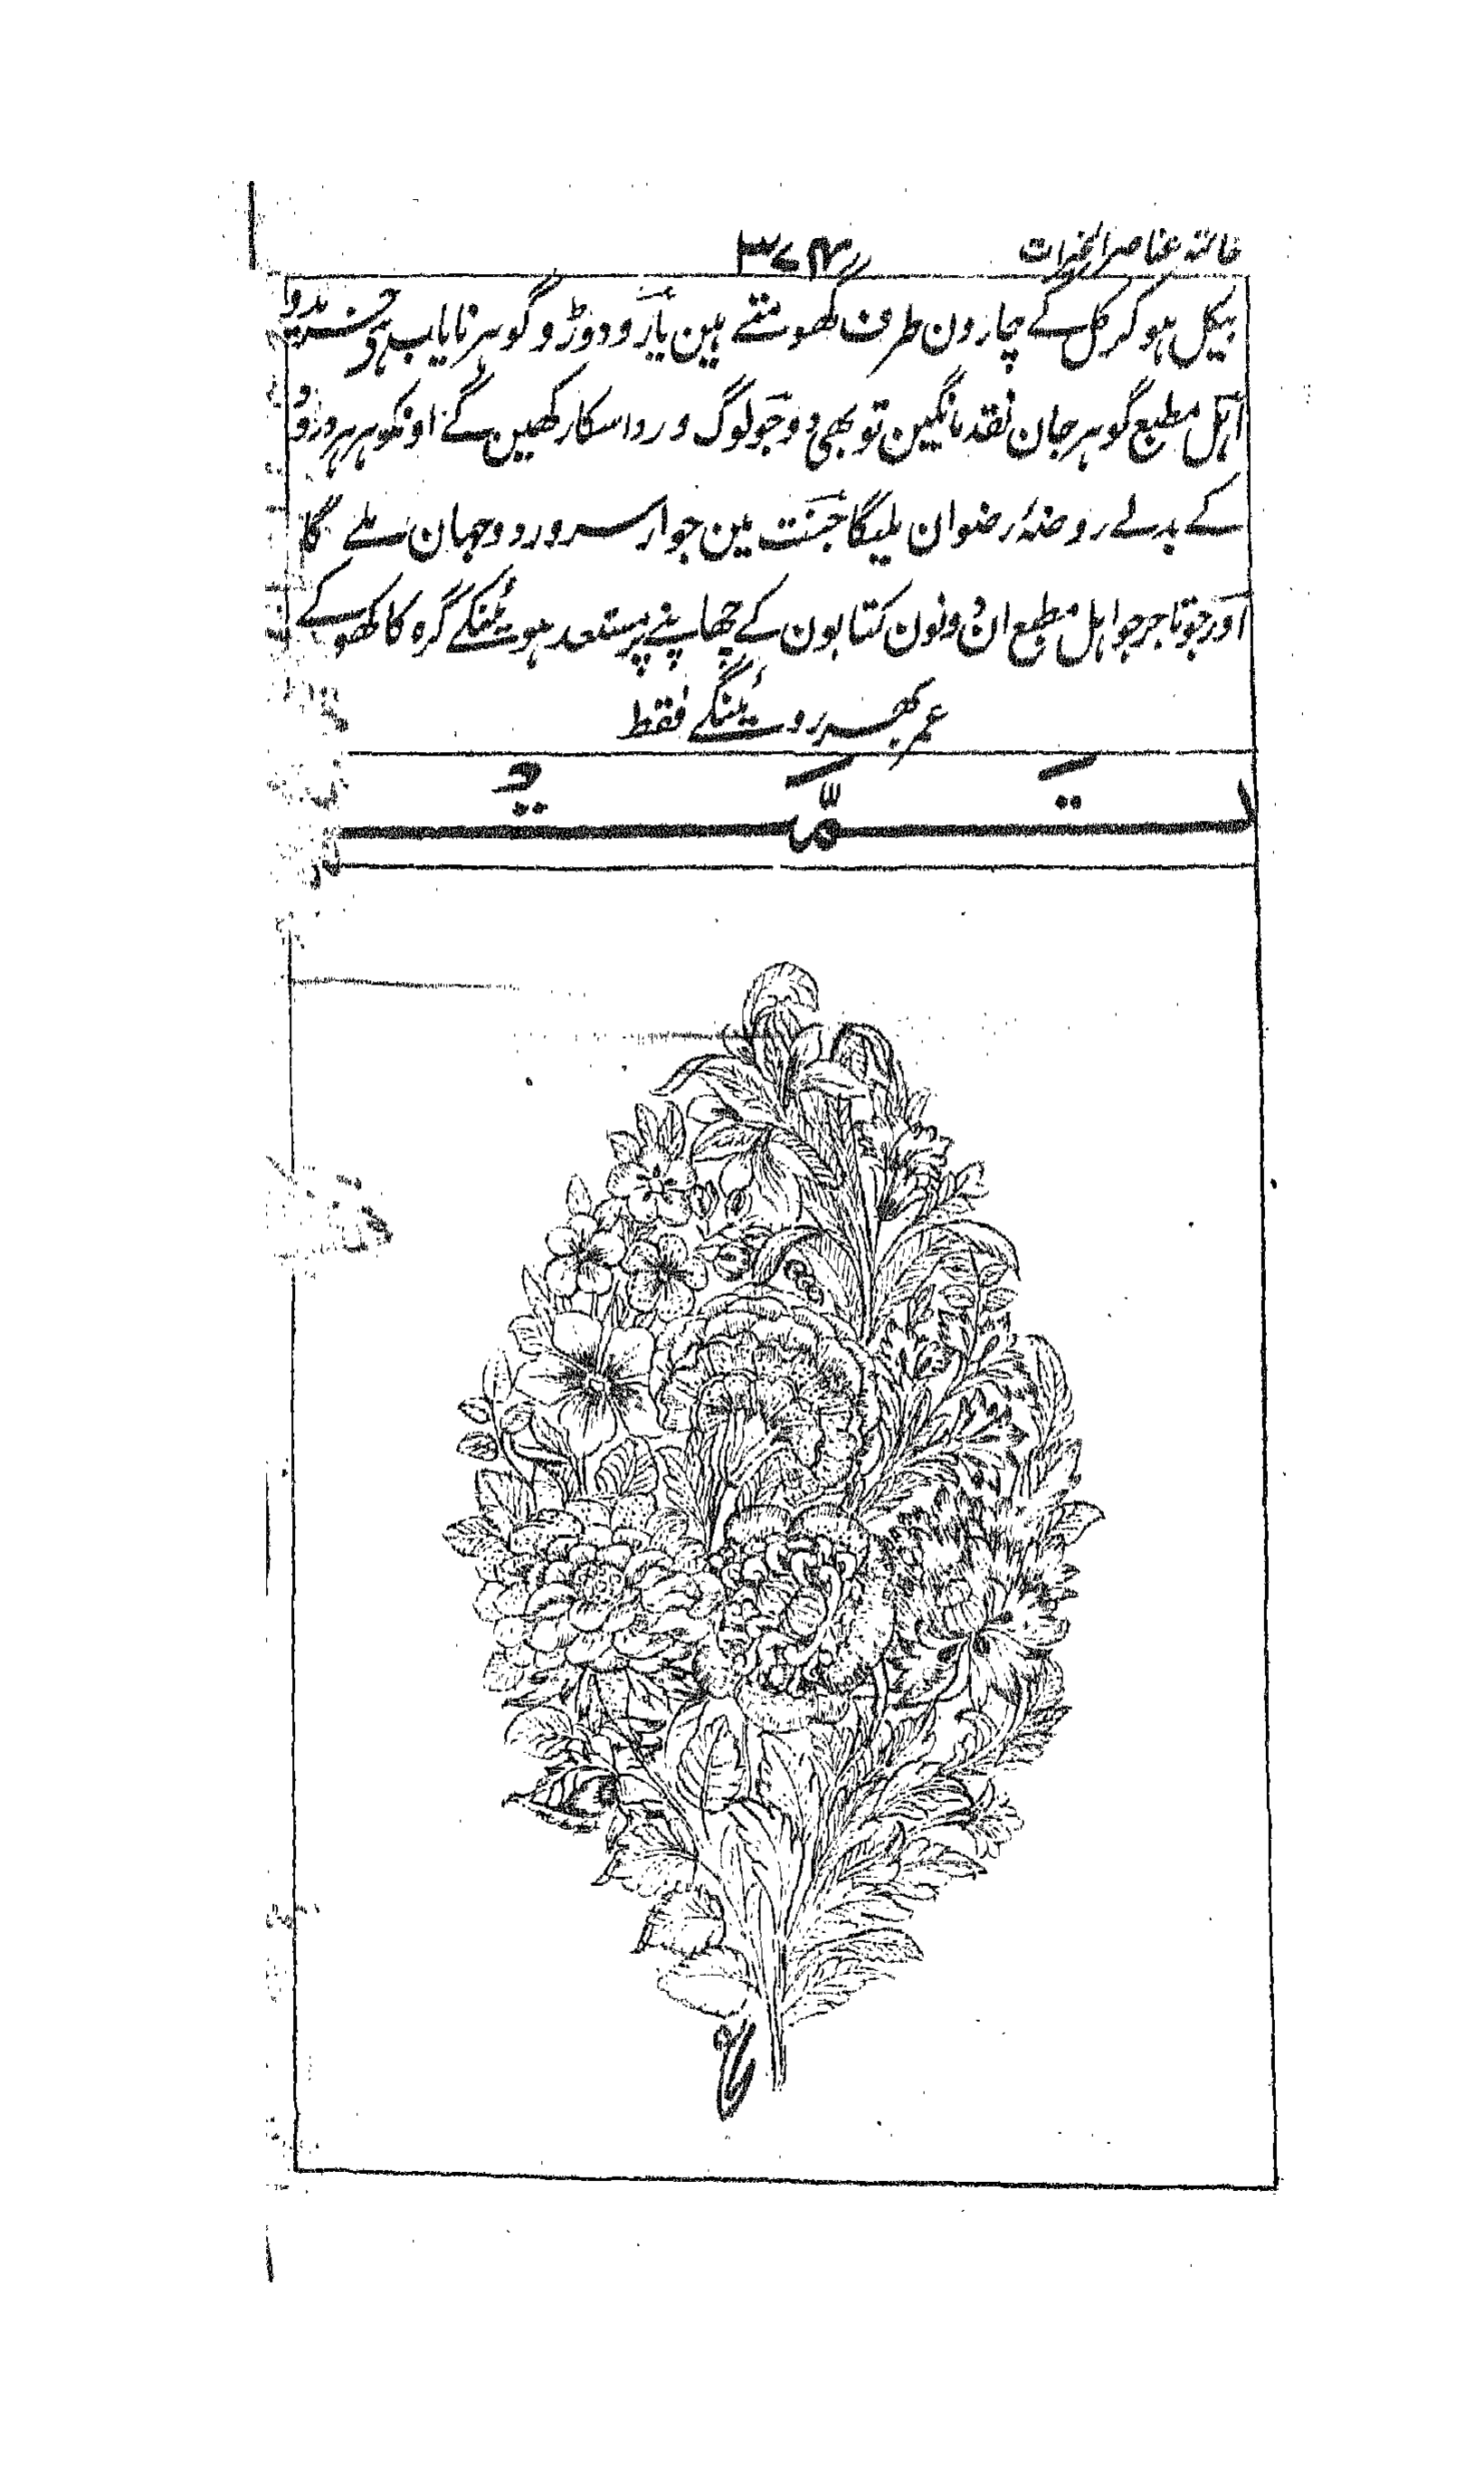 خاتمۂ عناصر الخیرات ۳۷۴
بیکل ہو کر کل کے چارون طرف گھومتے ہین یارو دوڑو گوہر نایاب ہو خرید و
اہل مطبع گوہر جان نقد مانگین تو بھی دو جو لوگ ورد اسکا رکھین گے اونکو ہر ہر ورق
کے بدلے روضۂ رضوان ملیگا جنت مین جوار سرور دو جہان ملے گا
اور جو تاجر جو اہل مطبع ان دونون کتابون کے چھاپنے پر مستعد ہوئینگے گرہ کا کھو کے
عمر بھر روئینگے فقط